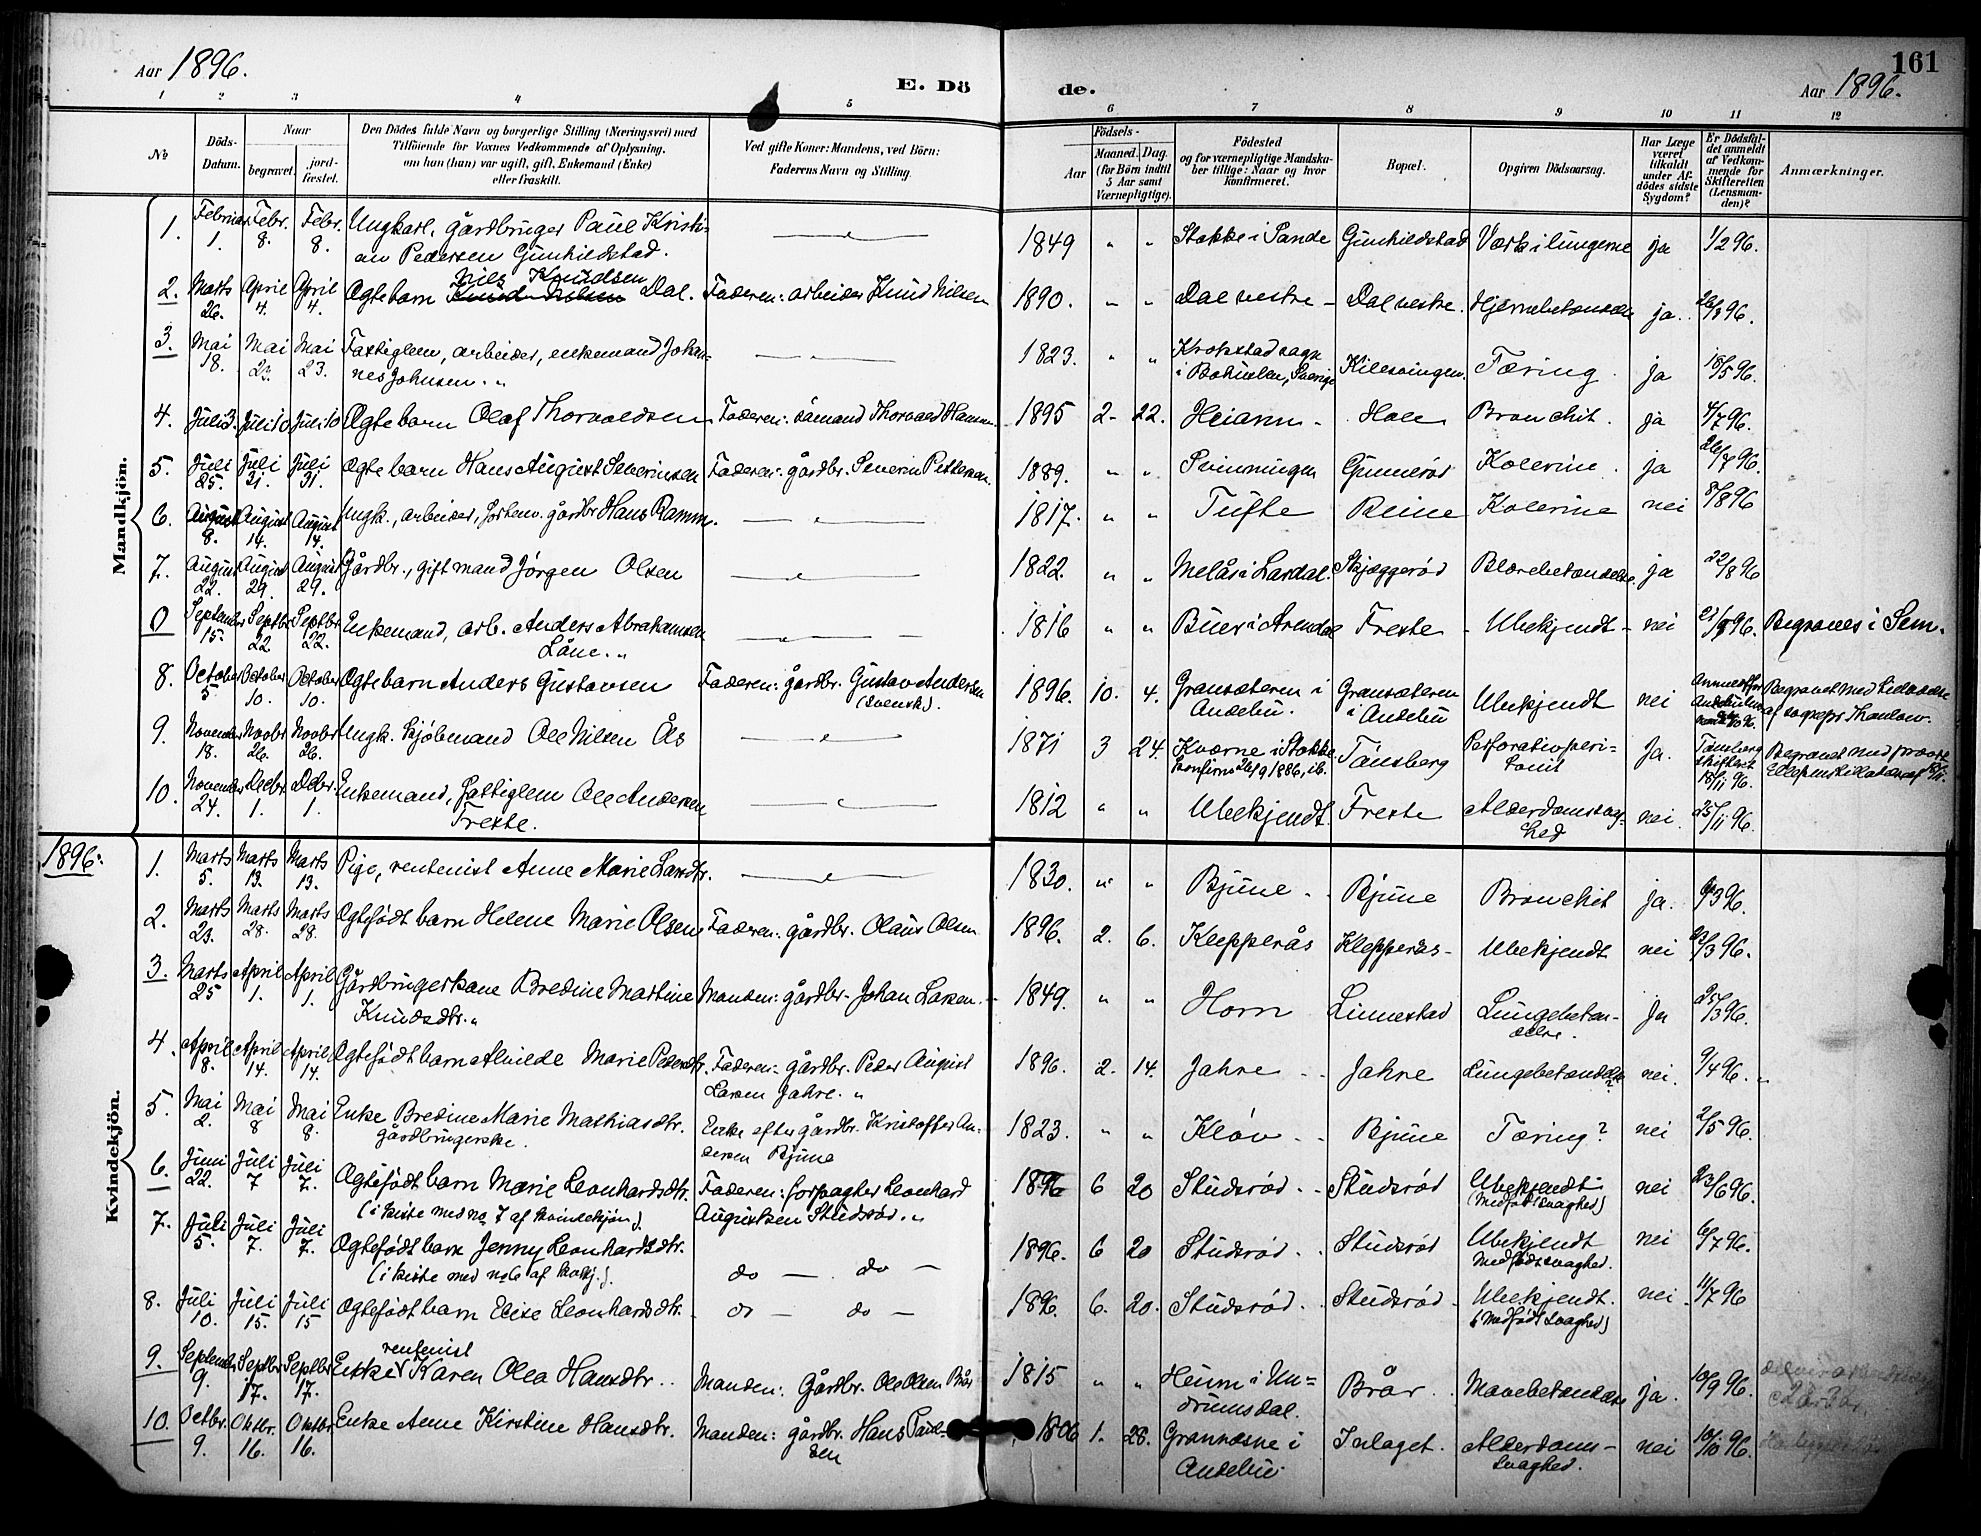 161
Aar 1896.
E. Dö
de.
Aar 1896.
1 2 3 4 5 6 7 8 9 10 11 12
No
Döds-
Datum.
Naar
begravet.
jord-
fæstet.
Den Dödes fulde Navn og borgerlige Stilling (Næringsvei) med
Tilföiende for Voxnes Vedkommende af Oplysning,
om han (hun) var ugift, gift, Enkemand (Enke)
eller fraskilt.
Ved gifte Koner: Mandens, ved Börn:
Faderens Navn og Stilling.
Födsels-
Aar
Maaned. Dag.
(for Börn indtil
5 Aar samt
Værnepligtige).
Födested
og for værnepligtige Mandska-
ber tillige: Naar og hvor
konfirmeret.
Bopæl.
Opgiven Dödsaarsag.
Har Læge
været
tilkaldt
under Af-
dödes sidste
Sygdom?
Er Dödsfal-
det anmeldt
af Vedkom-
mende for
Skifteretten
(Lensman-
den)?
Anmærkninger.
Mandkjön.
1. Februar 1. Febr. 8. Febr. 8. Ungkarl, gårdbruger Paul Kristi-
an Pedersen Gunhildstad. 1849 " " Stokke i Sande Gunhildstad Værk i lungerne ja 1/2 96.
2. Marts 26. April 4. April 4. Ægtebarn Nils Knudsen Dal. Faderen: arbeider Knud Nilsen 1890. " " Dal vestre - Dal vestre. Hjernebetændelse ja. 26/3 96.
3. Mai 18. Mai 23. Mai 23. Fattiglem, arbeider, enkemand Johan-
nes Johnsen. " 1823. " " Krokstad sogn
i Bohuslen, Sverige Kilesvingen. Tæring. ja 18/5 96.
4. Juli 3. Juli 10 Juli 10 Ægtebarn Olaf Thorvaldsen Faderen: sømand Thorvald Hansen. 1895 2- 22. Heiann - Hale Bronchit. ja 4/7 96.
5. Juli 25. Juli 31. Juli 31. Ægtebarn Hans August Severinsen Faderen: gårdbr. Severin Pettersen. 1889. " " Svinningen Gunnerød Kolerine. ja 26/7 96.
6. August 8. August 14. August 14. Ungk., arbeider, forhenv. gårdbr. Hans Ramm. 1817. " " Tufte Reine Kolerine nei 8/8 96
7. August 22. August 29. August 29. Gårdbr., gift mand Jörgen Olsen 1822. " " Melås i Lardal. Skjæggerød Blærebetændelse ja 22/8 96
0 September 15. Septbr. 22 Septbr. 22. Enkemand, arb. Anders Abrahamsen
Låne. " 1816 " " Buer i Arendal Freste - Ubekjendt - nei 21/9 96. Begraves i Sem.
8. October 5 October 10. October 10. Ægtebarn Anders Gustavsen Faderen: gårdbr. Gustav Andersen
(svensk). 1896. 10. 4. Gransæteren i
Andebu. Gransæteren
i Andebu Ubekjendt nei
9. November 18. Novbr. 26. Novbr. 26. Ungk. Skjöbmand Ole Nilsen Ås 1871 3 24. Kværne i Stokke
konfirm. 26/9 1886, ib. Tönsberg Perforativperi-
tonit Ja. Tönsberg
skifteret
18/11 96.
10. November 24. Decbr. 1. Decbr. 1. Enkemand, fattiglem Ole Andersen
Freste. 1812 " " Ubekjendt Freste Alderdomssvag-
hed nei. 25/11 96.
1896:
Kvindekjön.
1. Marts 5. Marts 13. Marts 13. Pige, rentenist Anne Marie Larsdtr. 1830. " " Bjune - Bjune Bronchit ja.
2. Marts 23. Marts 28. Marts 28. Ægtefödt barn Helene Marie Olsen Faderen: gårdbr. Olaus Olsen 1896. 2. 6. Klepperås Klepperås - Ubekjendt nei 23/3 96.
3. Marts 25 April 1. April 1. Gårdbrugerkone Bredine Martine
Knudsdtr. " Manden: gårdbr. Johan Larsen. 1849. " " Horn Linnestad Lungebetæn-
delse. Ja 25/3 96.
4. April 8. April 14. April 14. Ægtefödt barn Alvilde Marie Pedersdtr. Faderen: gårdbr. Peder August
Larsen Jahre. " 1896. 2. 14. Jahre - Jahre Lungebetændelse? nei. 9/4 96.
5. Mai 2. Mai 8 Mai 8. Enke Bredine Marie Mathiasdtr.
gårdbrugerske. Enke efter gårdbr. Kristoffer An-
dersen Bjune 1823. " " Kløv - Bjune Tæring? nei 2/5 96.
6. Juni 22. Juli 7 Juli 7. Ægtefödt barn Marie Leonhardsdtr.
(i kiste med no 7 af kvindekjøn). Faderen: forpagter Leonhard
Augustsen Studsröd. " 1896 6 20 Studsröd - Studsröd Ubekjendt
(Medfödt svaghed) nei 22/6 96.
7. Juli 5. Juli 7. Juli 7. Ægtefödt barn Jenny Leonhardsdtr.
(i kiste med no 6 af kvkj.). do - do - 1896. 6 20 Studsröd. Studsröd Ubekjendt
Medfödt svaghed. nei 6/7 96.
8. Juli 10. Juli 15. Juli 15 Ægtefödt barn Elise Leonhardsdtr. do - do - 1896. 6. 20. Studsröd. Studsröd - Ubekjendt.
(Medfödt svaghed) nei 11/7 96
9. September 9. Septbr. 17. Septbr. 17. Enke rentenist Karen Olea Hansdtr. Manden: Gårdbr. Ole Olsen Brår 1815 " " Heum i Un=
drumsdal. Brår. Mavebetændelse ja. 10/9 96.
10. Octbr. 9. Oktbr. 16. Oktbr. 16. Enke Anne Kirstine Hansdtr. Manden: gårdbr. Hans Paul-
sen 1806 1. 28. Grannesne i
Andebu Inlaget. Alderdoms-
svaghed. nei 10/10 96.